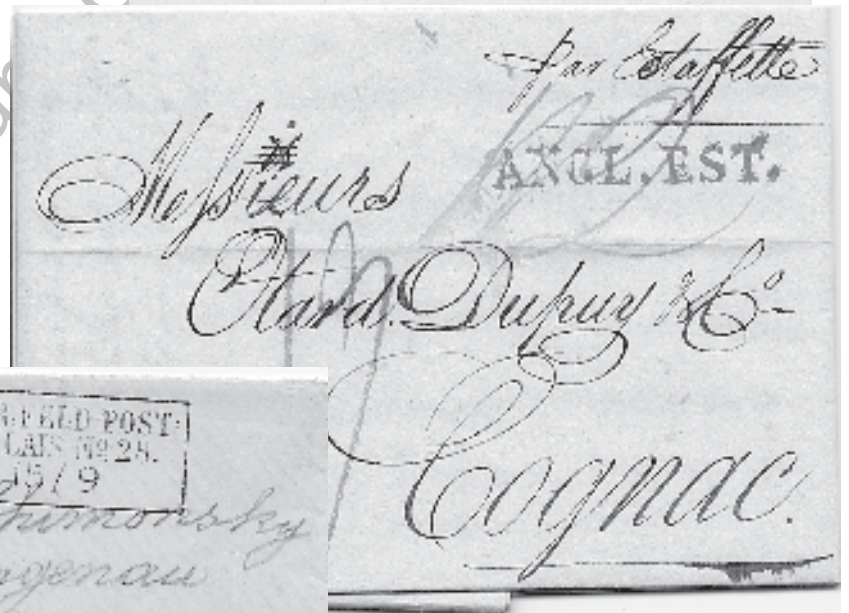 par Estaffette
ANGL. EST.
Messieurs
Otard. Dupuy & Co
Cognac.
FELD-POST
LAIS No 28.
15/9